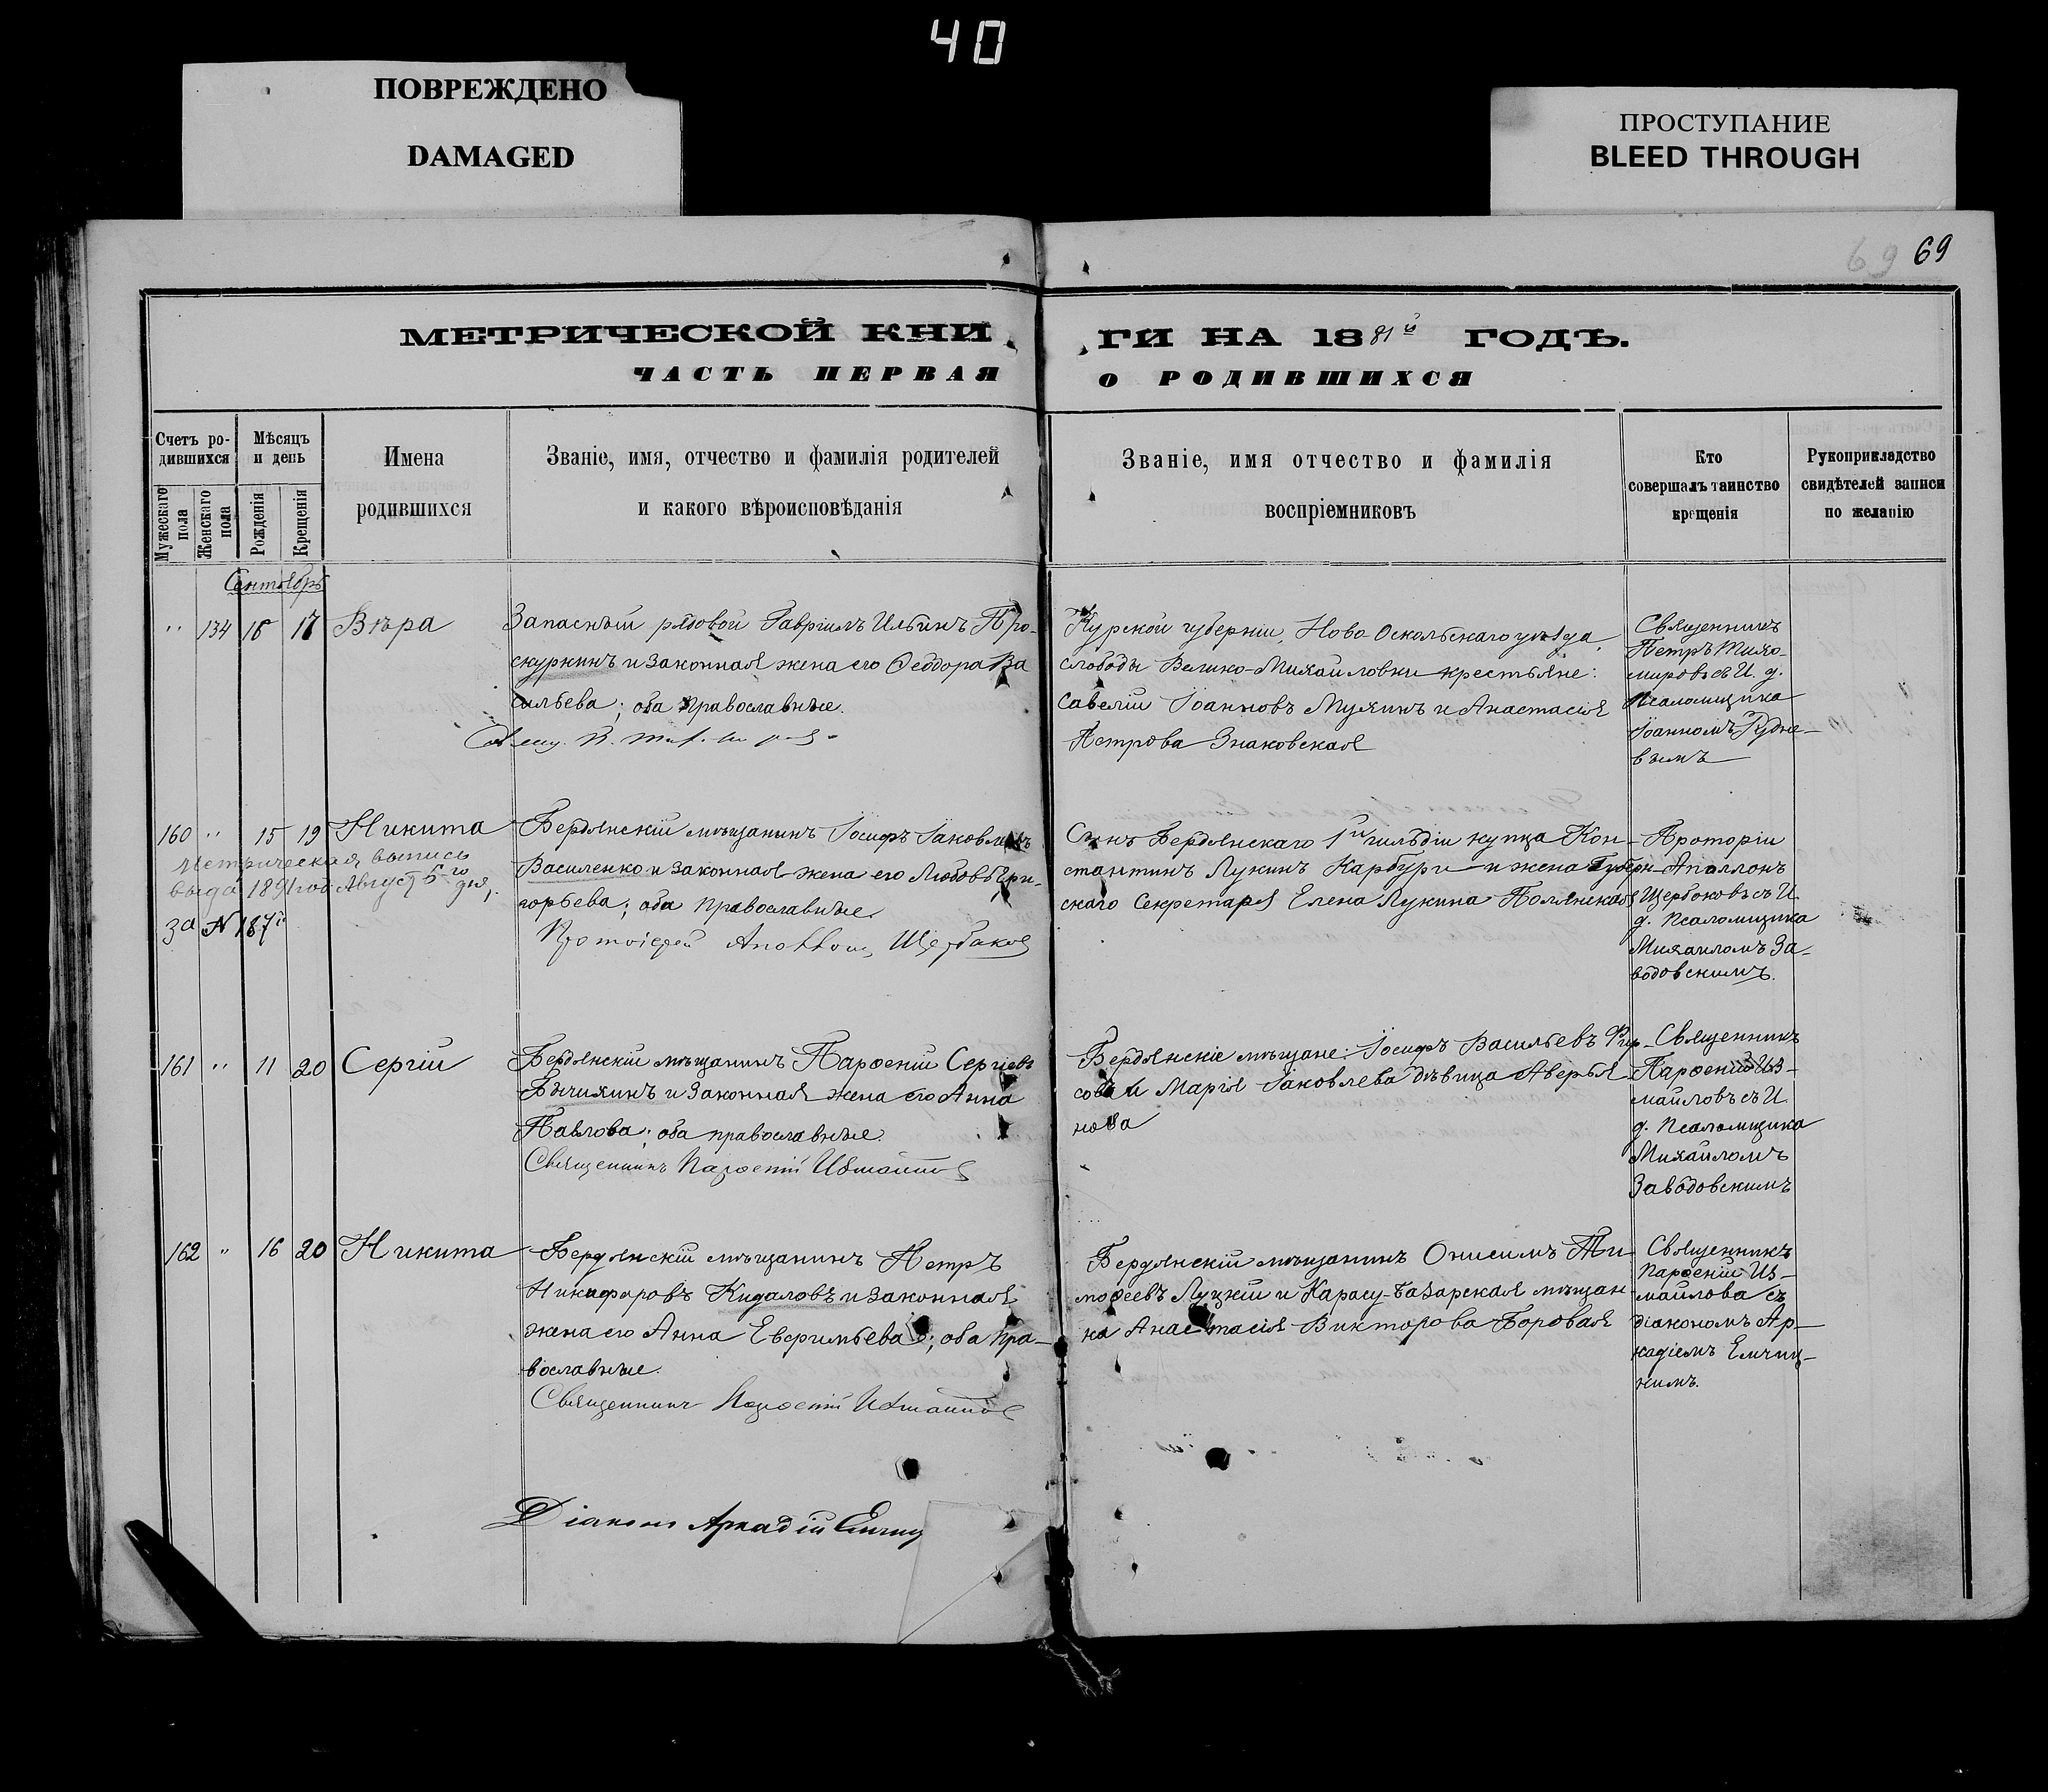 40
ПОВРЕЖДЕНО
DAMAGED
ПРОСТУПАНИЕ
BLEED THROUGH
69 69
МЕТРИЧЕСКОЙ КНИ
ГИ НА 1881й ГОДЪ.
ЧАСТЬ ПЕРВАЯ
О РОДИВШИХСЯ
Счетъ ро-
дившихся
Мужескаго пола
Женскаго пола
Мѣсяцъ
и день
Рожденія
Крещенія
Имена
родившихся
Званіе, имя, отчество и фамилія родителей
и какого вѣроисповѣданія
Званіе, имя отчество и фамилія
воспріемниковъ
Кто
совершалъ таинство
крещенія
Рукоприкладство
свидѣтелей записи
по желанію
Сентябрь
" 134 16 17 Вѣра
Запасный рядовой Гавріилъ Ильинъ Про-
скуркинъ и законная жена его Ѳеодора Ва
сильева; оба православные.
Курской губерніи, Ново Оскольскаго уѣзда,
слободы Велико-Михайловки крестьяне:
Савелій Іоанновъ Мухинъ и Анастасія
Петрова Знаковская
Священникъ
Петръ Тихо-
мировъ съ И. д.
Псаломщика
Іоанномъ Рудне-
вымъ
160 " 15 19 Никита
Метрическая выпись
выда 1891 год Август 5го дня,
за № 187й
Бердянскій мѣщанинъ Іосифъ Іаковлевъ
Василенко и законная жена его Любовь Гри-
горьева; оба православные.
Протоіерей Аполлонъ Щербаковъ
Сынъ Бердянскаго 1й гильдіи купца Кон-
стантинъ Лукинъ Карбури и жена Губерн-
скаго Секретаря Елена Лукина Полянская
Проторіи
Аполлонъ
Щербоковъ съ И.
д. Псаломщика
Михаиломъ За-
водовскимъ.
161 " 11 20 Сергій
Бердянскій мѣщанинъ Парѳеній Сергіевъ
Бычихинъ и законная жена его Анна
Павлова; оба православные.
Священникъ Парѳеній Измайловъ
Бердянскіе мѣщане: Іосифъ Васильевъ Фир-
совъ и Марія Іаковлева дѣвица Аверья-
нова
Священникъ
Парѳеній Из-
майловъ съ И.
д. Псаломщика
Михаиломъ
Заводовскимъ
162 " 16 20 Никита
Бердянскій мѣщанинъ Петръ
Никифоровъ Кидаловъ и законная
жена его Анна Евфимьева; оба пра-
вославные.
Священникъ Парѳеній Измайловъ
Бердянскій мѣщанинъ Онисимъ Ти-
моѳеевъ Луцкій и Карасу-базарская мѣщан-
ка Анастасія Викторова Боровая
Священникъ
Парѳеній Из-
майлова съ
діакономъ Ар-
кадіемъ Емчиц-
кимъ.
Діаконъ Аркадій Емчиц